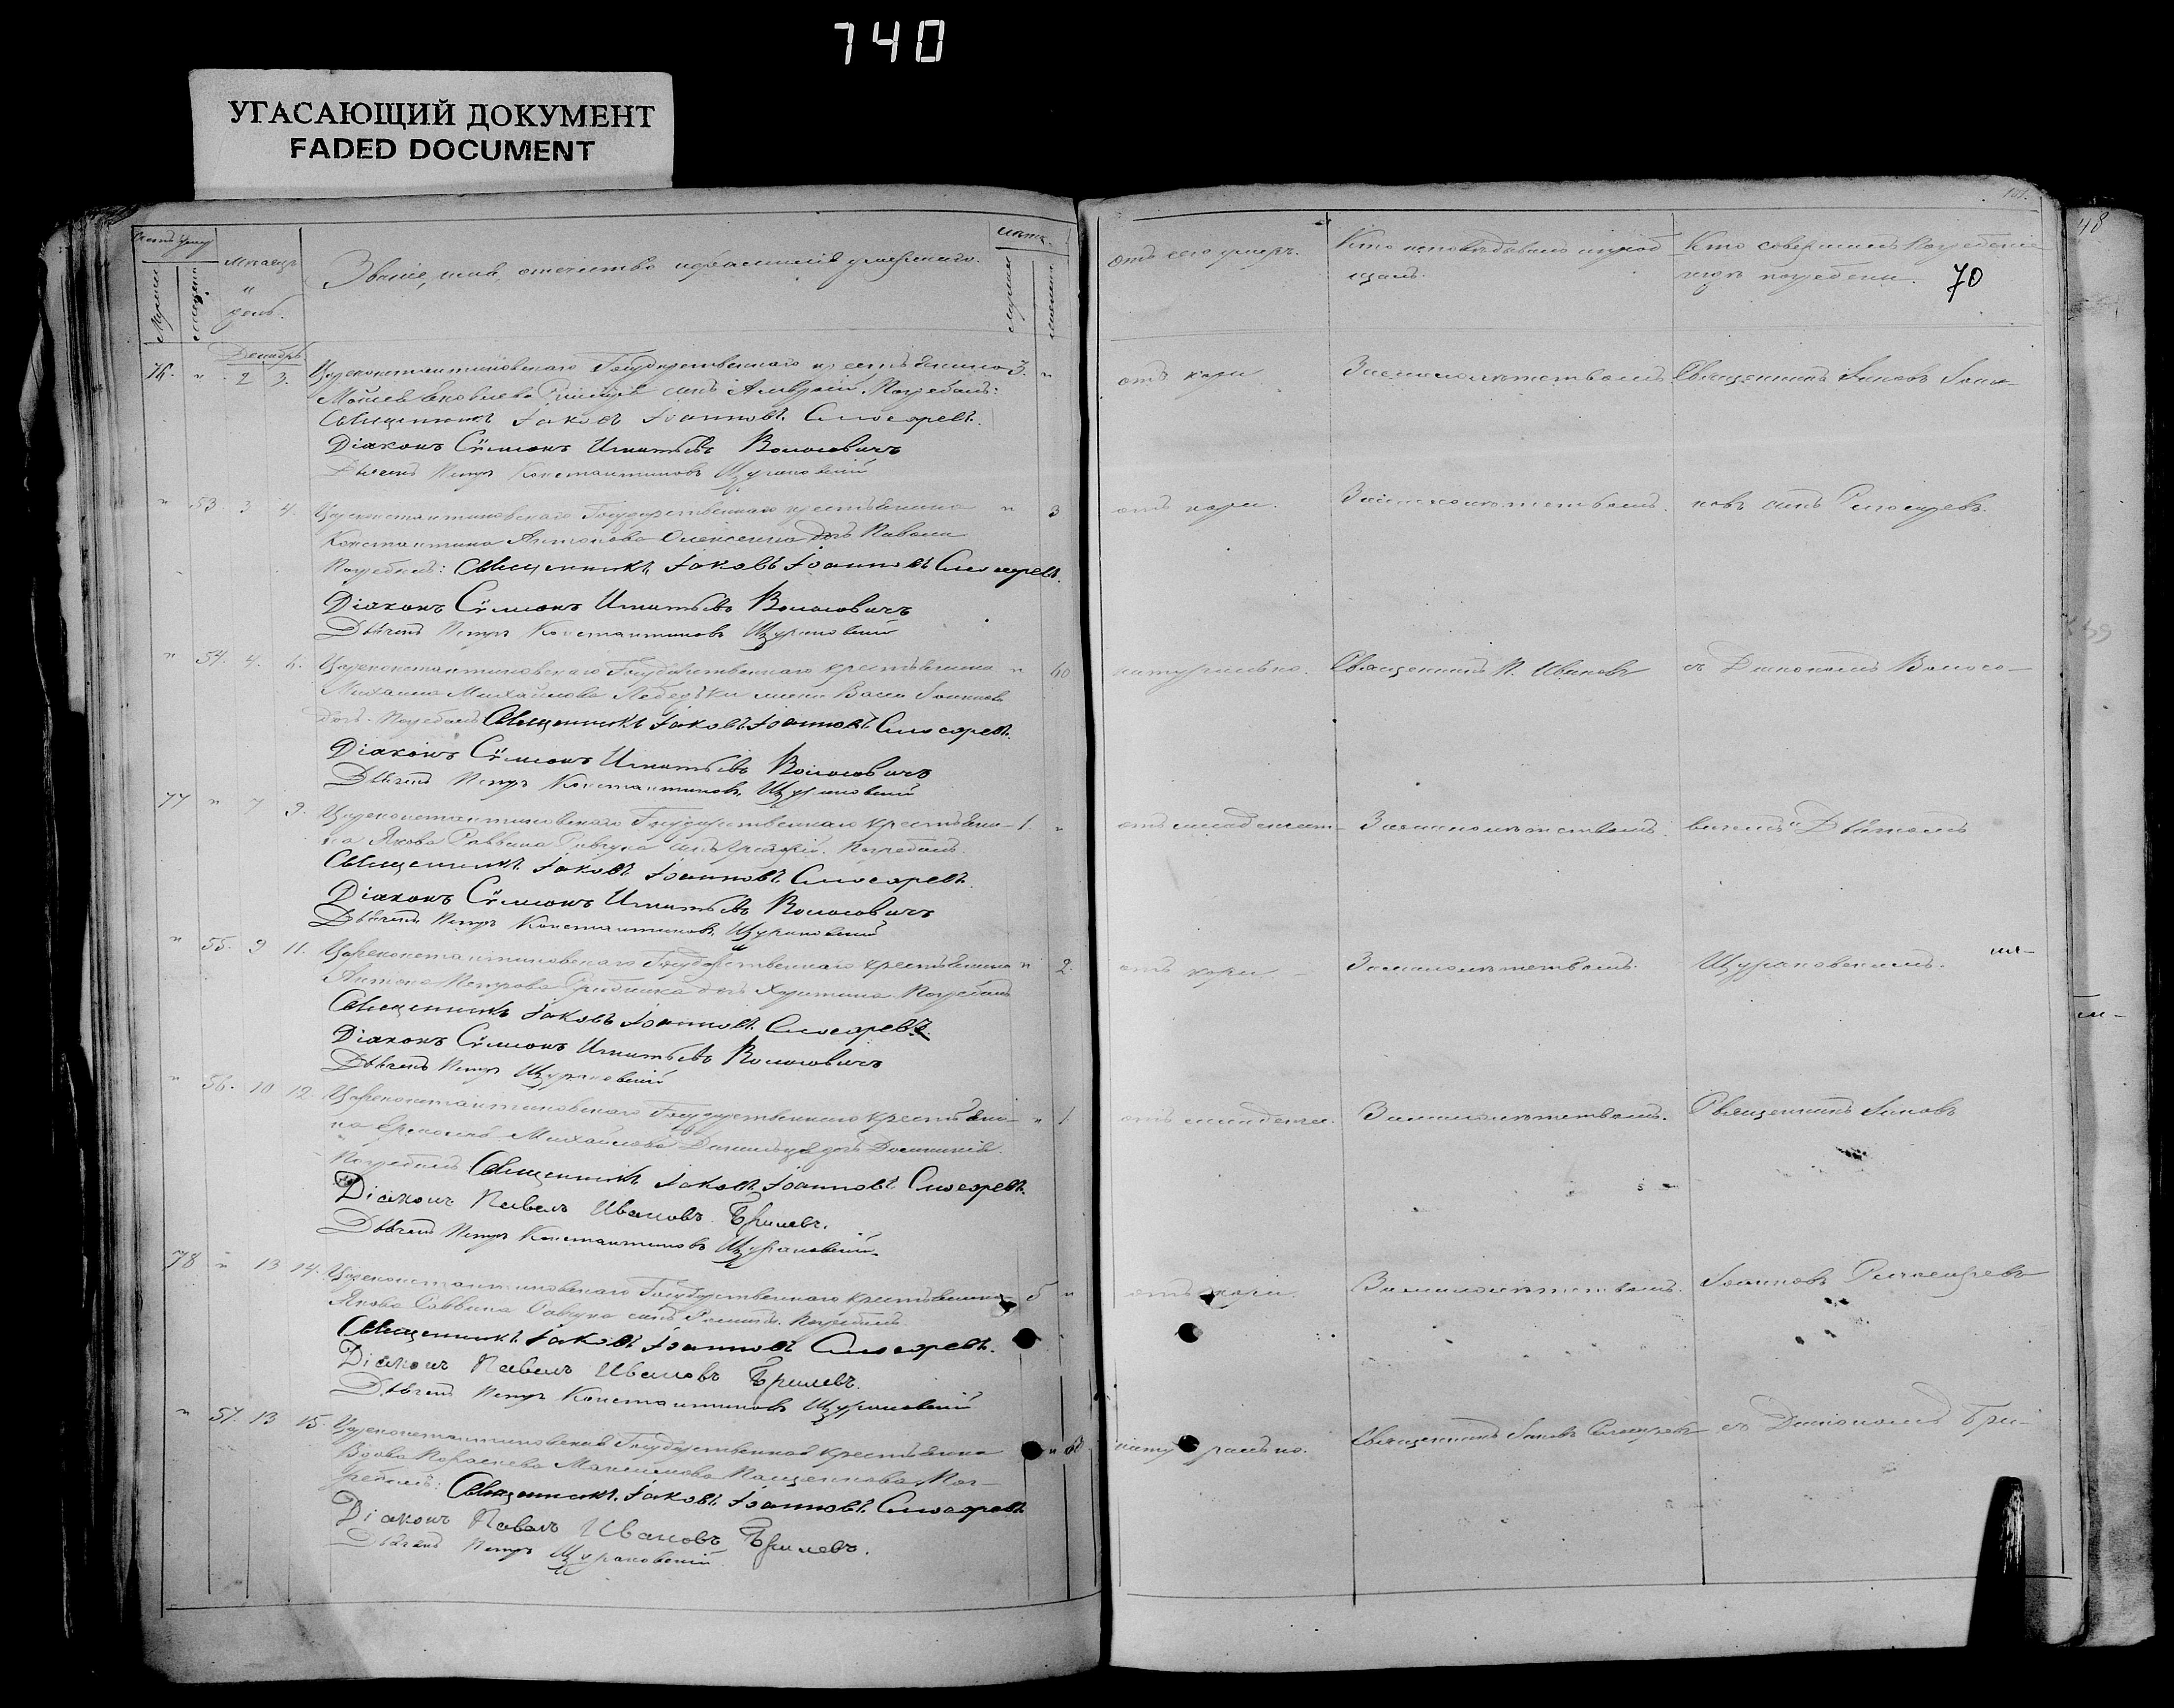 740
УГАСАЮЩИЙ ДОКУМЕНТ
FADED DOCUMENT
101.
48
Мѣсяцъ
и
день.
Званіе, имя, отечество и фамилія умершаго.
отъ чего умеръ.
Кто исповѣдывалъ и приоб
щалъ.
Кто совершалъ погребеніе
и гдѣ погребенъ.
70
Декабрь
76. " 2 3. Цареконстантиновскаго Государственнаго крестьянина 3. "
Моисея Яковлева сынъ Погребалъ:
Священникъ Іаковъ Іоанновъ Слюсаревъ.
Діаконъ Сѵмеонъ Игнатьевъ Волосовичъ
Дьячекъ Петръ Константиновъ Щурановскій
отъ кори
За малолѣтствомъ
Священникъ Іаковъ Іоан-
" 53. 3 4. Цареконстантиновскаго Государственнаго крестьянина " 3
Константина Антонова Олексенка дочь
Погребалъ: Священникъ Іаковъ Іоанновъ Слюсаревъ.
Діаконъ Сѵмеонъ Игнатьевъ Волосовичъ
Дьячекъ Петръ Константиновъ Щурановскій
отъ кори.
За малолѣтствомъ.
новъ сынъ Слюсаревъ.
" 54. 4. 6. Цареконстантиновскаго Государственнаго крестьянина " 60
Михаила Михайлова жена Васса Іоаннова
дочь. Погребалъ Священникъ Іаковъ Іоанновъ Слюсаревъ.
Діаконъ Сѵмеонъ Игнатьевъ Волосовичъ
Дьячекъ Петръ Константиновъ Щурановскій
натурально.
Священникъ П. Ивановъ
съ Діакономъ Волосо-
77 " 7 9. Цареконстантиновскаго Государственнаго крестьяни- 1. "
на Якова Саввина сынъ Григорій. Погребалъ
Священникъ Іаковъ Іоанновъ Слюсаревъ.
Діаконъ Сѵмеонъ Игнатьевъ Волосовичъ
Дьячекъ Петръ Константиновъ Щурановскій
За малолѣтствомъ.
вичемъ и Дьячкомъ
" 55. 9 11. Цареконстантиновскаго Государственнаго крестьянина " 2.
Антона Петрова дочь Харитина. Погребалъ
Священникъ Іаковъ Іоанновъ Слюсаревъ.
Діаконъ Сѵмеонъ Игнатьевъ Волосовичъ
Дьячекъ Петръ Щурановскій
отъ кори
За малолѣтствомъ.
Щурановскимъ.
" 56. 10 12. Цареконстантиновскаго Государственнаго крестьяни- " 1
на Михайлова дочь
Погребалъ Священникъ Іаковъ Іоанновъ Слюсаревъ.
Діаконъ Павелъ Ивановъ Брилевъ.
Дьячекъ Петръ Константиновъ Щурановскій
За малолѣтствомъ.
Священникъ Іаковъ
78 " 13 14. Цареконстантиновскаго Государственнаго крестьянина 5 "
Якова Саввина сынъ Погребалъ
Священникъ Іаковъ Іоанновъ Слюсаревъ.
Діаконъ Павелъ Ивановъ Брилевъ.
Дьячекъ Петръ Константиновъ Щурановскій
отъ кори.
За малолѣтствомъ.
Іоанновъ Слюсаревъ
" 57. 13 15. Цареконстантиновская Государственная крестьянка "
Вдова Максимова Пог-
ребалъ: Священникъ Іаковъ Іоанновъ Слюсаревъ
Діаконъ Павелъ Ивановъ Брилевъ.
Дьячекъ Петръ Щурановскій
натурально.
Священникъ Іаковъ Слюсаревъ
съ Діакономъ Бри-